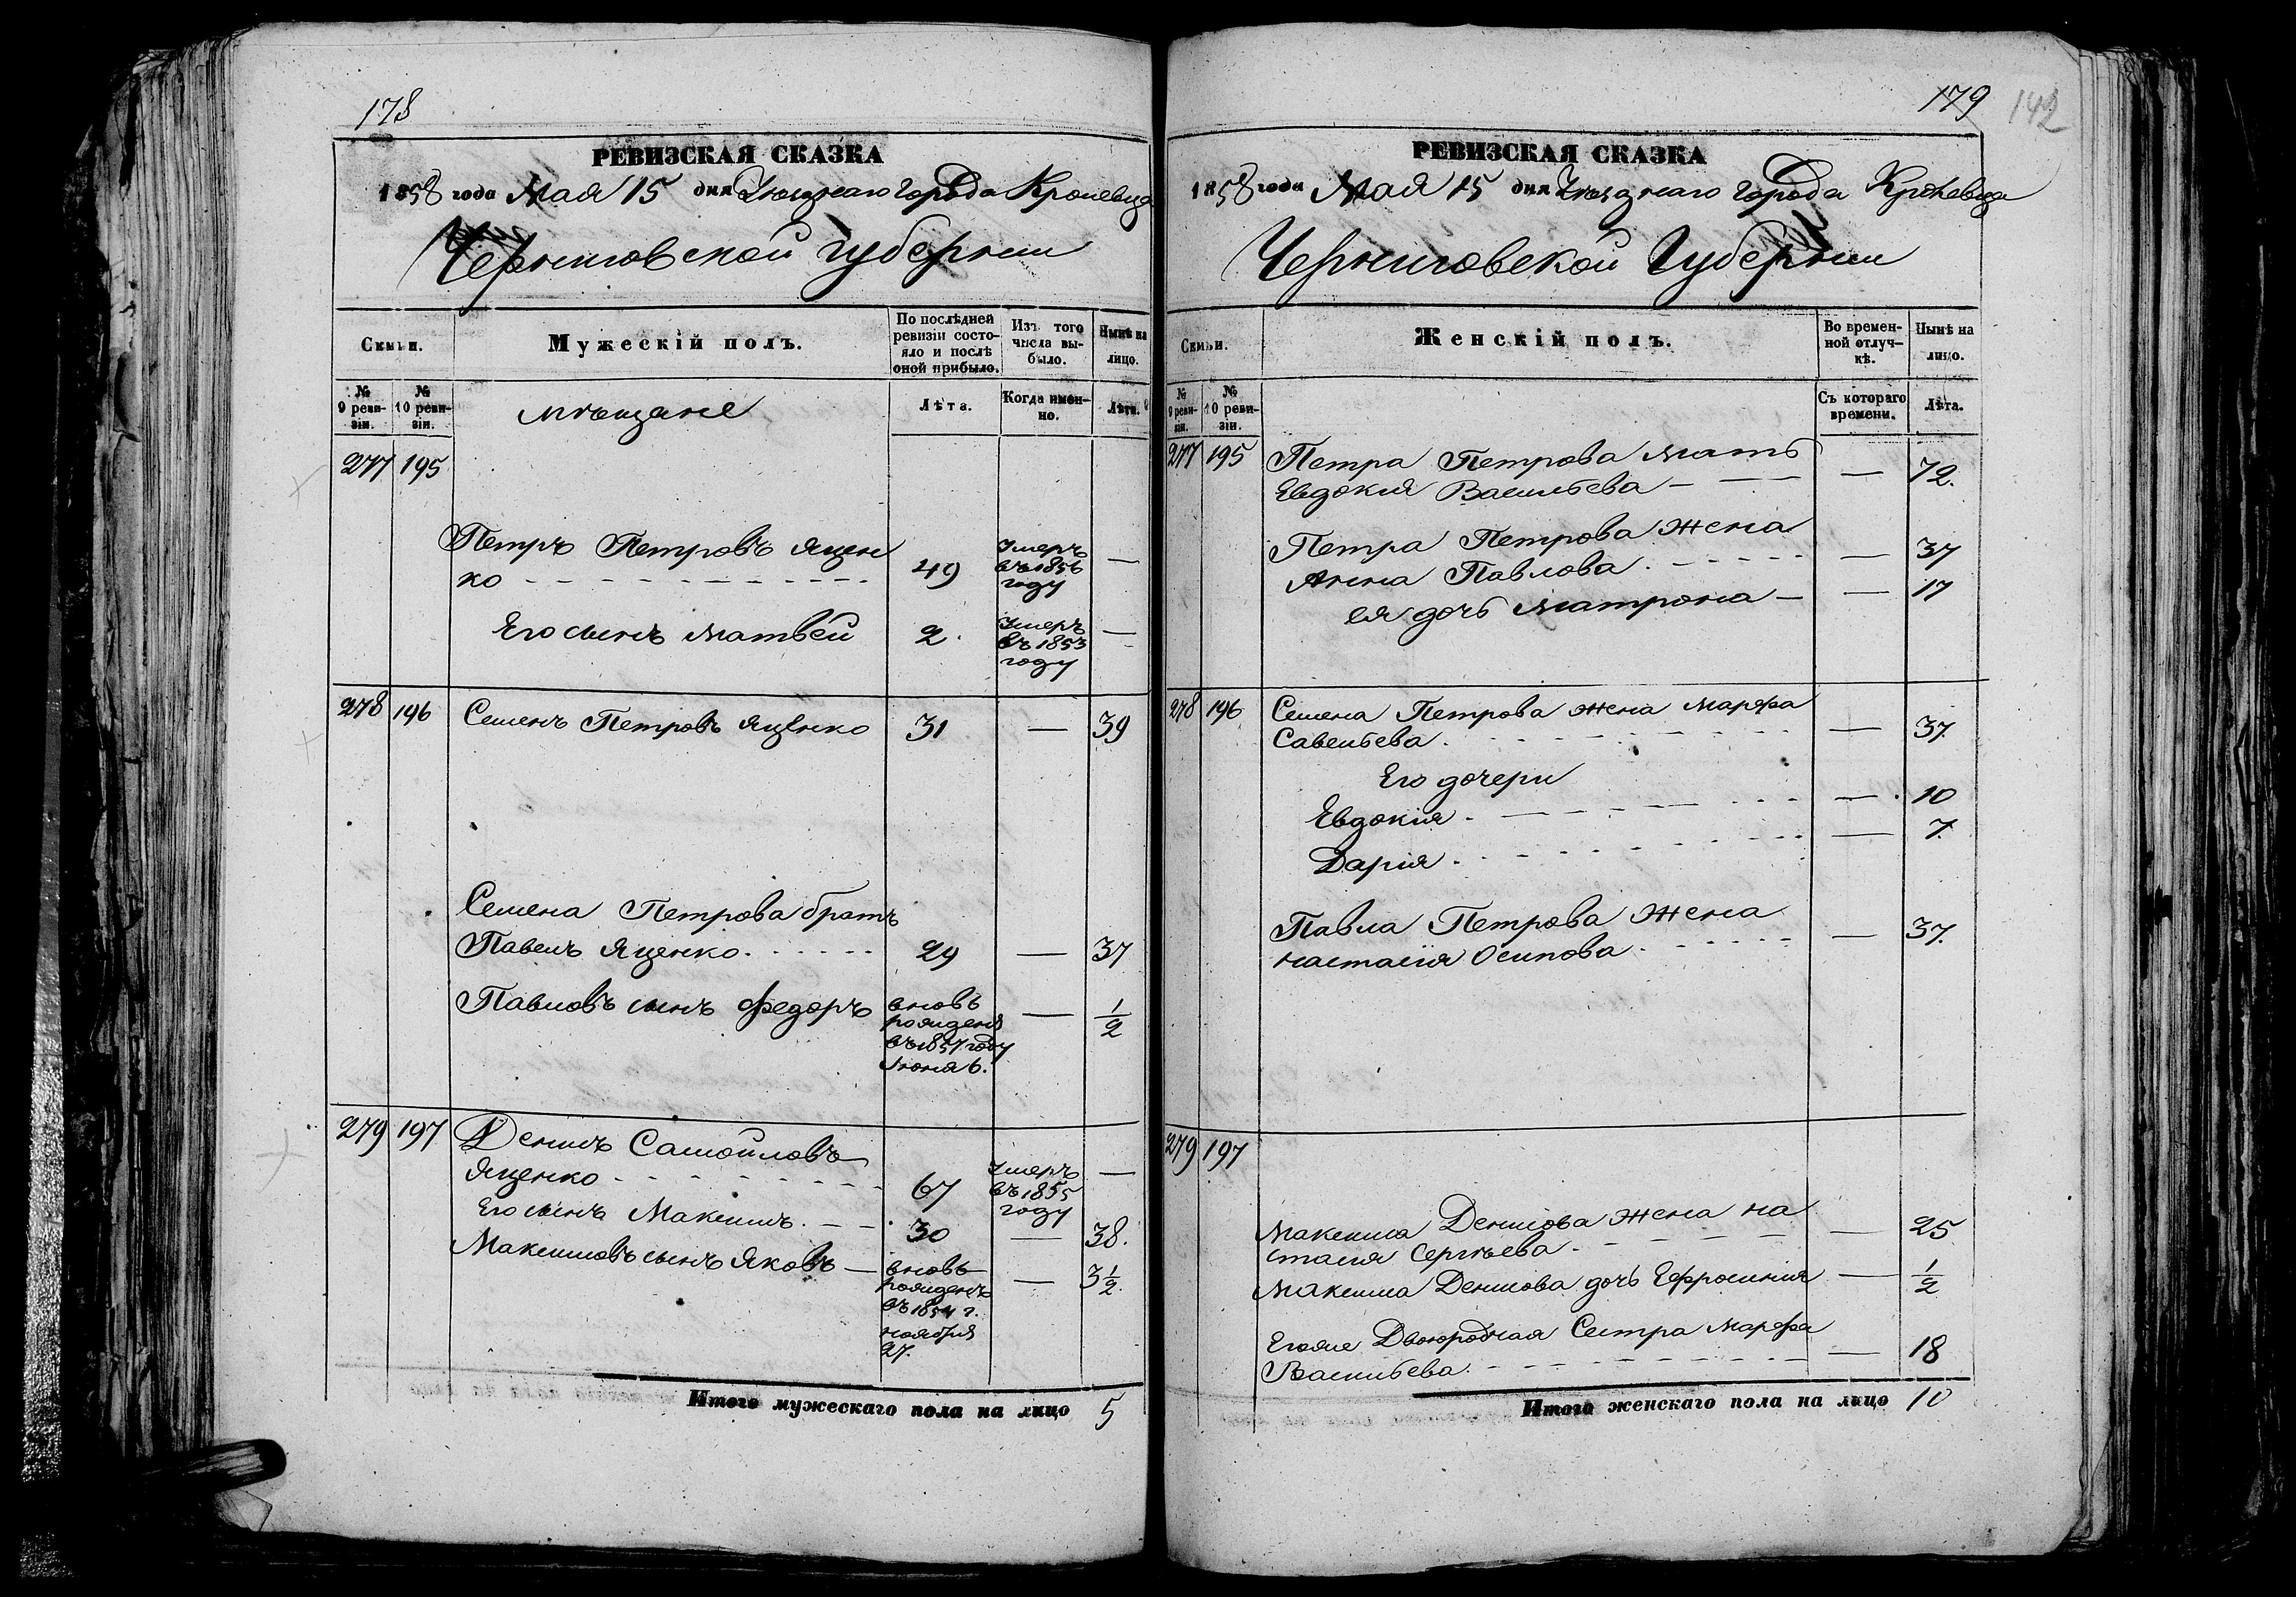 178
РЕВИЗСКАЯ СКАЗКА
1858 года Мая 15 дня Уѣзднаго города Кролевца
Черниговской губерніи
Семьи.
Мужескій полъ.
По послѣдней
ревизіи состо-
яло и послѣ
оной прибыло.
Изъ того
числа вы-
было.
Нынѣ на
лицо.
№
9 реви-
зіи.
№
10 реви-
зіи.
мѣщане
Лѣта.
Когда имен-
но.
Лѣта.
277 195
Петръ Петровъ Яцен
ко 49 Умеръ
въ 1856
году —
Его сынъ Матвей 2. Умеръ
въ 1853
году —
278 196 Семенъ Петровъ Яценко 31 — 39
Семена Петрова братъ
Павелъ Яценко 29 — 37
Павловъ сынъ Федоръ вновь
рожденъ
въ 1857 году
Іюня 6. — 1/2
279 197 Денисъ Самойловъ
Яценко 67 Умеръ
въ 1855
году —
Его сынъ Максимъ 30 — 38.
Максимовъ сынъ Яковъ — вновь
рожденъ
въ 1854 г.
ноября
27. — 3 1/2.
Итого мужескаго пола на лицо 5
179 142
РЕВИЗСКАЯ СКАЗКА
1858 года Мая 15 дня Уѣзднаго города Кролевца
Черниговской Губерніи
Семьи.
Женскій полъ.
Во времен-
ной отлуч-
кѣ.
Нынѣ на
лицо.
№
9 реви-
зіи.
№
10 реви-
зіи.
Съ котораго
времени.
Лѣта.
277 195 Петра Петрова мать
Евдокия Васильева — 72.
Петра Петрова жена
Анна Павлова — 37
ея дочь Матрона — 17
278 196 Семена Петрова жена Марфа
Савельева — 37.
Его дочери
Евдокія — 10
Дарія — 7.
Павла Петрова жена
Настасія Осипова — 37.
279 197
Максима Денисова жена На
стасия Сергѣева — 25
Максима Денисова дочь Ефросинія — 1/2
Егоже Двоюродная Сестра Марфа
Васильева — 18
Итого женскаго пола на лицо 10